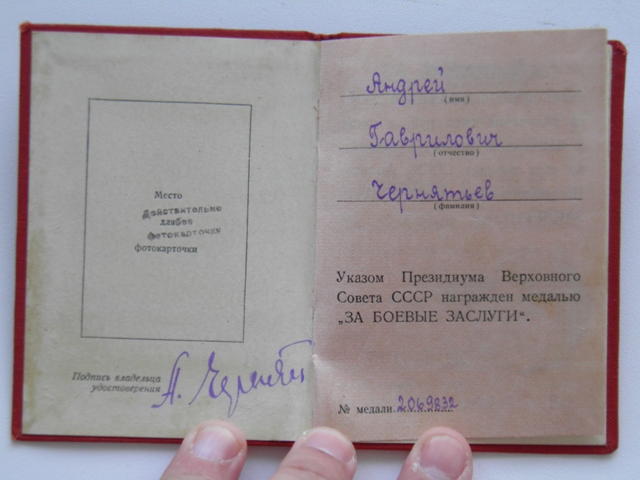 Место
Действительно
для без
фотокарточки
фотокарточки
Подпись владельца
удостоверения
А. Чернят
Андрей
(имя)
Гаврилович
(отчество)
Чернятьев
(фамилия)
Указом Президиума Верховного
Совета СССР награжден медалью
„ЗА БОЕВЫЕ ЗАСЛУГИ“.
№ медали 2069832